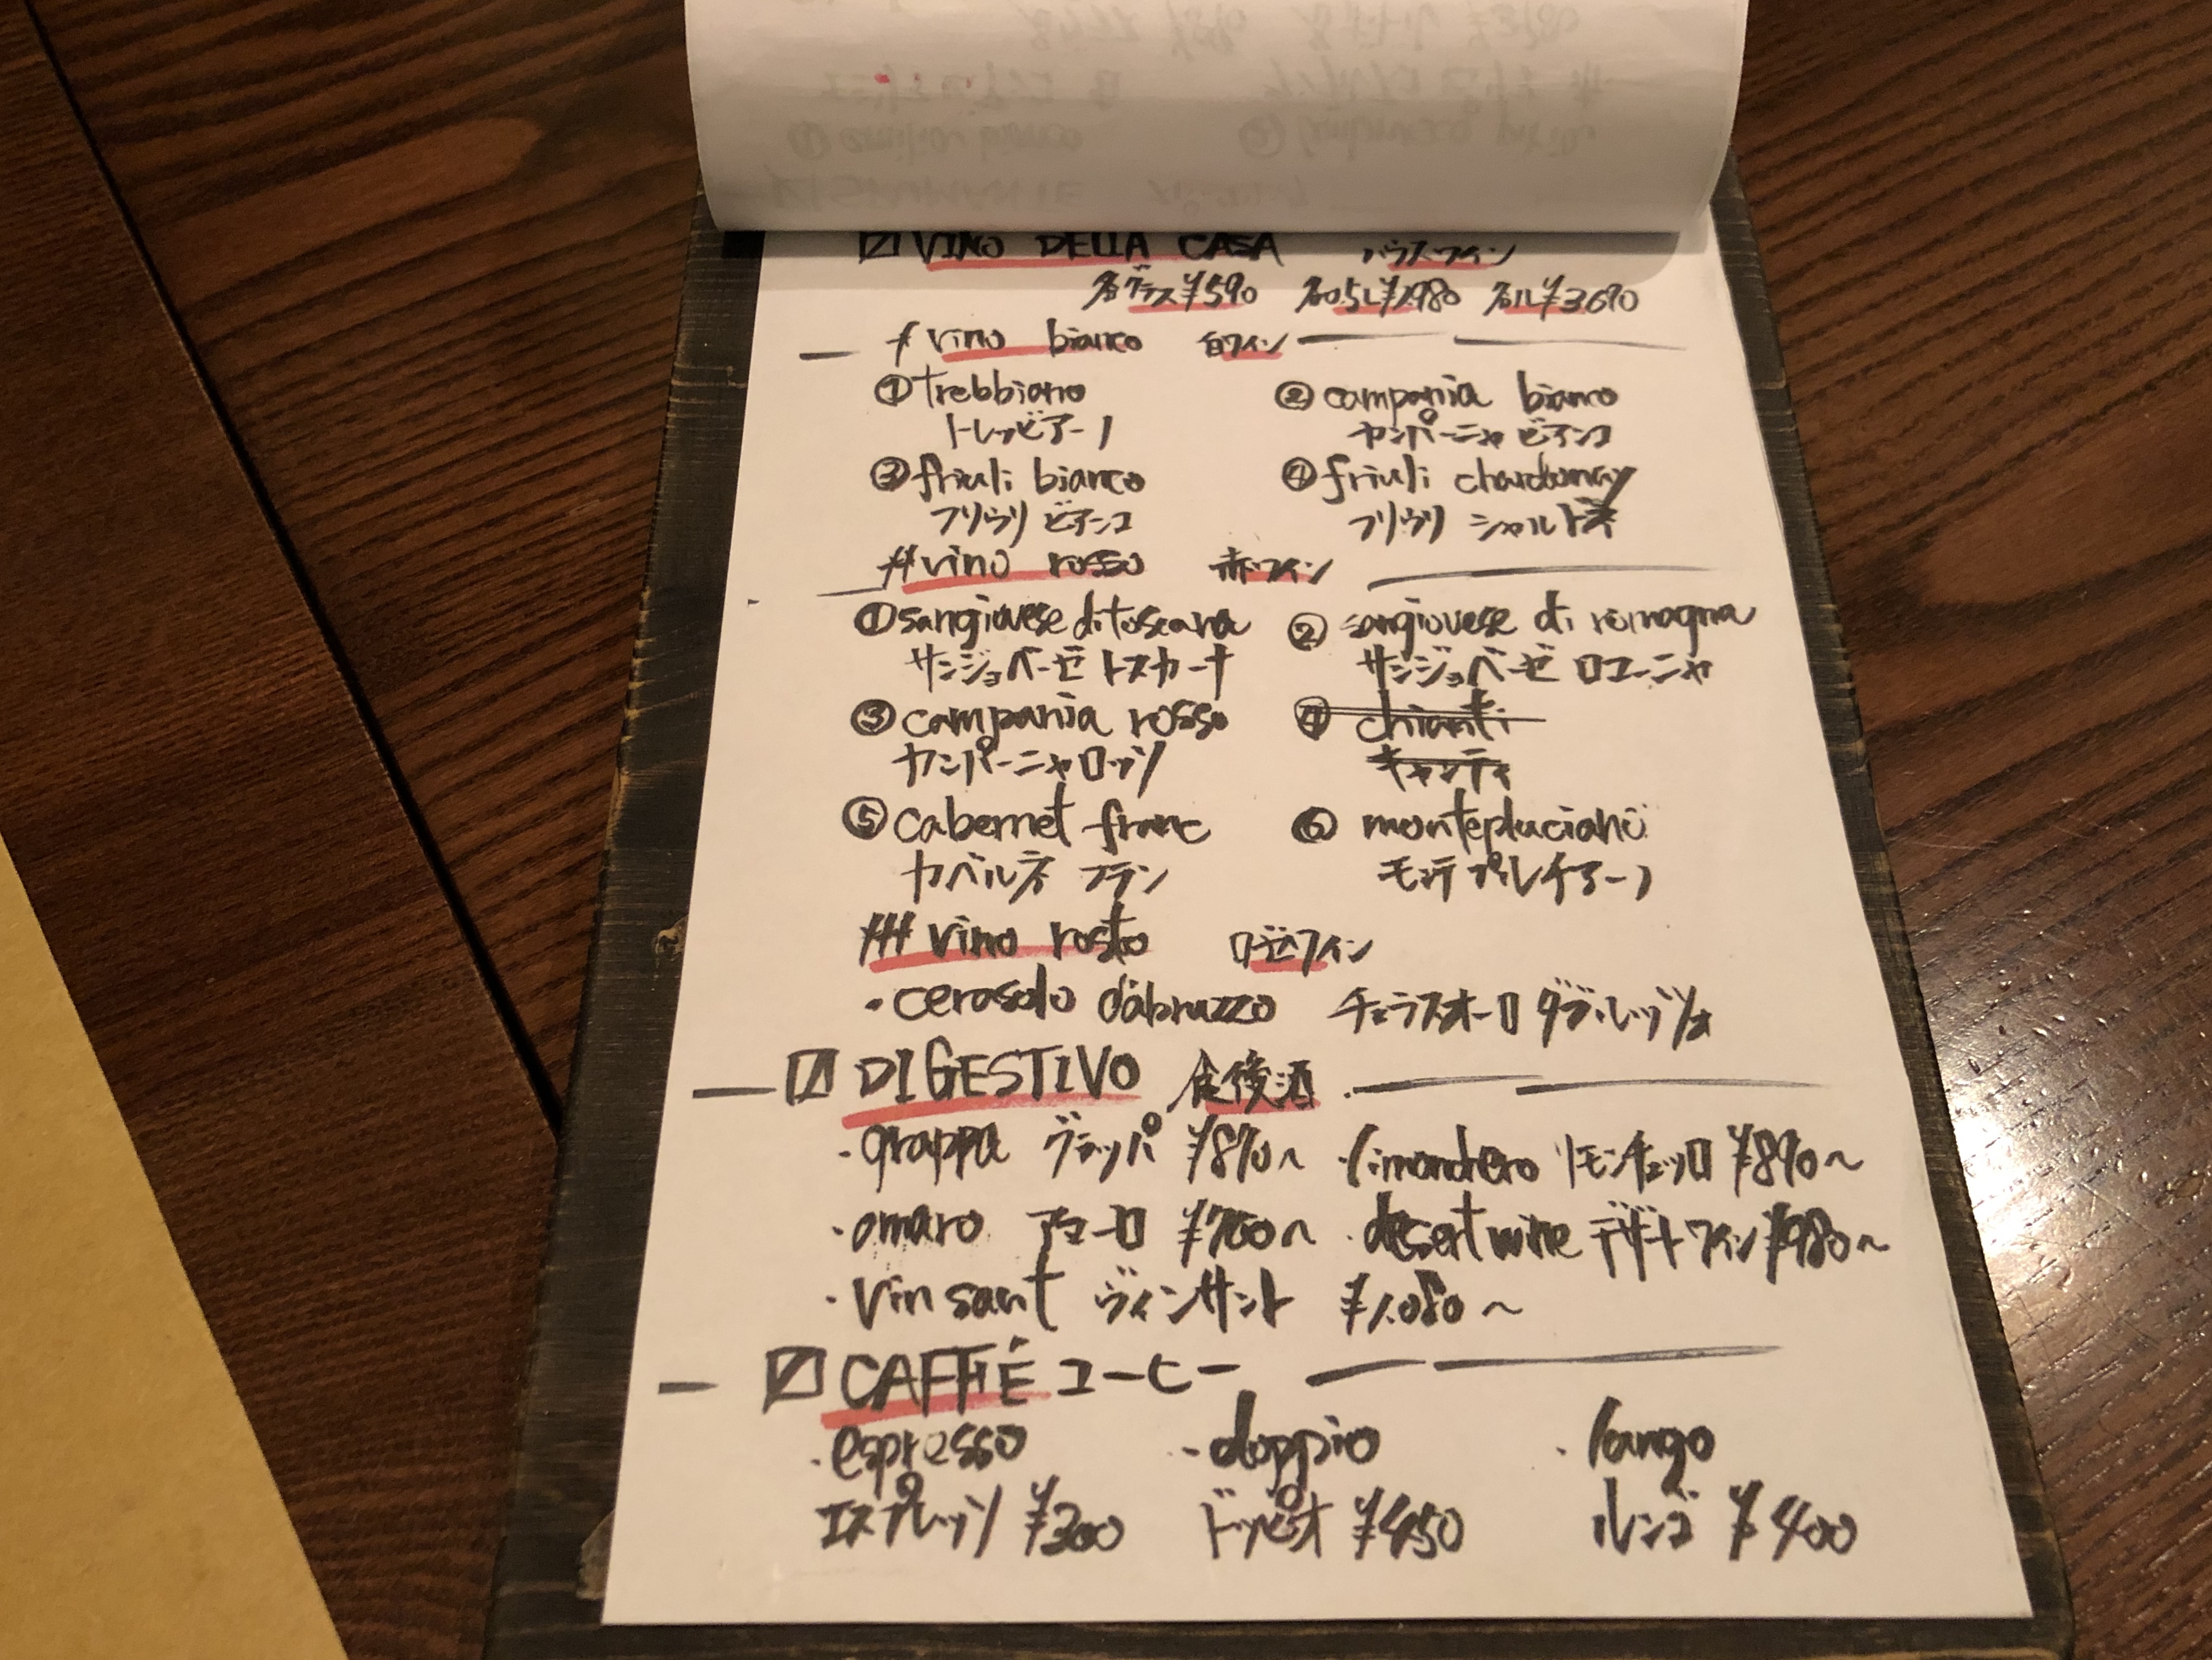 VINO DELLA CASA ハウスワイン
各グラス¥590 各0.5L¥1980 各1L¥3690
# vino bianco 白ワイン
①trebbiano ②campania bianco
トレッビアーノ カンパーニャ ビアンコ
③friuli bianco ④friuli chardonnay
フリウリ ビアンコ フリウリ シャルドネ
## vino rosso 赤ワイン
①sangiovese di toscana ②sangiovese di romagna
サンジョベーゼ トスカーナ サンジョベーゼ ロマーニャ
③campania rosso ④ chianti
カンパーニャロッソ キャンティ
⑤cabernet franc ⑥ montepluciano
カベルネ フラン モンテプルチアーノ
### vino rosto ロゼワイン
・cerasolo d'abruzzo チェラスオーロ ダブルッツォ
DIGESTIVO 食後酒
・grappa グラッパ ¥890~ ・limonchero リモンチェッロ ¥890~
・amaro アマーロ ¥700~ ・desert wine デザートワイン ¥980~
・vin sant ヴィンサント ¥1.080~
CAFFÉ コーヒー
・espresso ・doppio ・lungo
エスプレッソ ¥300 ドッピオ ¥450 ルンゴ ¥400